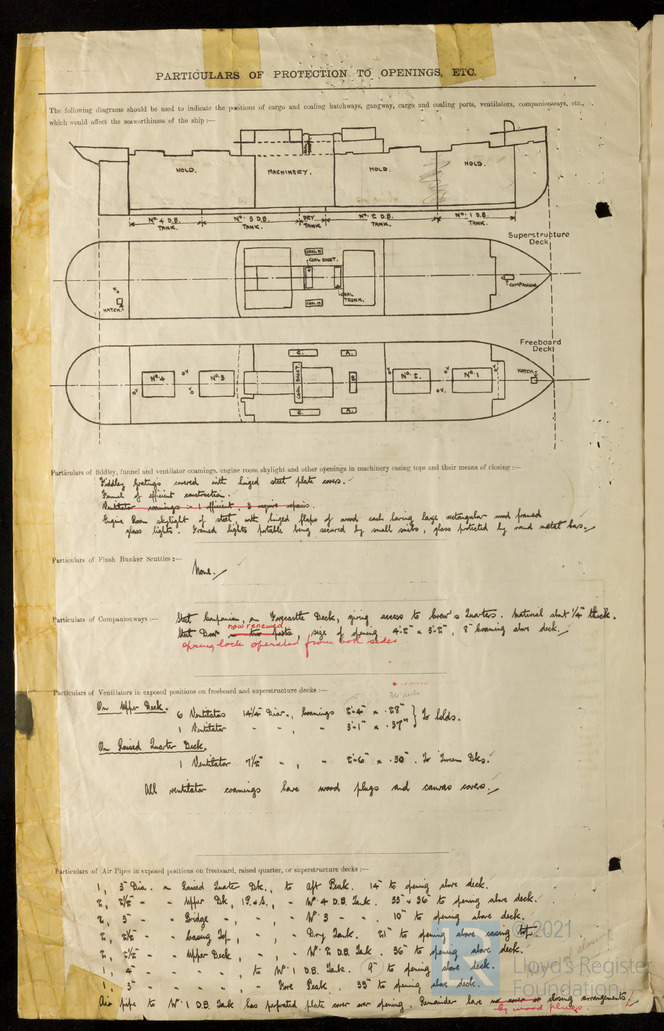 PARTICULARS OF PROTECTION TO OPENINGS, ETC.
The following diagrams should be used to indicate the positions of cargo and coaling hatchways, gangway, cargo and coaling ports, ventilators, companionways, etc.,
which would affect the seaworthiness of the ship :—
HOLD. MACHINERY. HOLD. HOLD.
No. 4 D.B. TANK. No. 3 D.B. TANK. DRY TANK No. 2 D.B. TANK. No. 1 D.B. TANK.
Superstructure Deck
COAL H
COAL SHOOT.
COMPANION
HATCH.
COAL H
COAL TRUNK.
Freeboard Deck
C. A.
No. 4 No. 3 COAL SHOOT B No. 2. No. 1 HATCH
C. A.
Particulars of fiddley, funnel and ventilator coamings, engine room skylight and other openings in machinery casing tops and their means of closing :—
Fiddley gratings covered with hinged steel plate covers.
Funnel of efficient construction.
Ventilator coamings - 1 efficient, 3 require repairs.
Engine Room skylight of steel, with hinged flaps of wood each having large rectangular wood framed
glass lights. Framed lights portable being secured by small screws, glass protected by round metal bars.
Particulars of Flush Bunker Scuttles :—
None.
Particulars of Companionways :—
Steel Companion, on Forecastle Deck, giving access to Crew's Quarters. Material about 1/4" thick.
Steel Door now renewed in two parts, size of opening 4'-2" x 3'-2", 8" coaming above deck.
spring lock operated from both sides
Particulars of Ventilators in exposed positions on freeboard and superstructure decks :—
On Upper Deck. 6 Ventilators 14 1/4" Diar., Coamings 2'-4" x .28" } To holds.
1 Ventilator " " , " 3'-1" x .37"
On Raised Quarter Deck.
1 Ventilator 7 1/2" " , " 2'-6" x .30". To Tween Dks.
All ventilator coamings have wood plugs and canvas covers.
Particulars of Air Pipes in exposed positions on freeboard, raised quarter, or superstructure decks :—
1, 3" Dia. on Raised Quarter Dk., to Aft Peak. 14" to opening above deck.
2, 2 1/2" " " Upper Dk, 1P. & S., " No 4 D.B. Tank. 33" & 36" to opening above deck.
2, 3" " " Bridge " , " " No 3 " " . 10" to opening above deck.
2, 2 1/2" " " Casing Top, " " Dry Tank. 21" to opening above casing top.
2, 2 1/2" " " Upper Deck, " " No 2 D.B. Tank. 36" to opening above deck.
1, 4" " " " " , to No 1 D.B. Tank. 9" to opening above deck.
1, 3" " " " " " Fore Peak. 33" to opening above deck.
Air pipe to No 1 D.B. Tank has perforated plate cover over opening. Remainder have no cover or closing arrangements.
by wood plugs.
© 2021
Lloyd's Register
Foundation